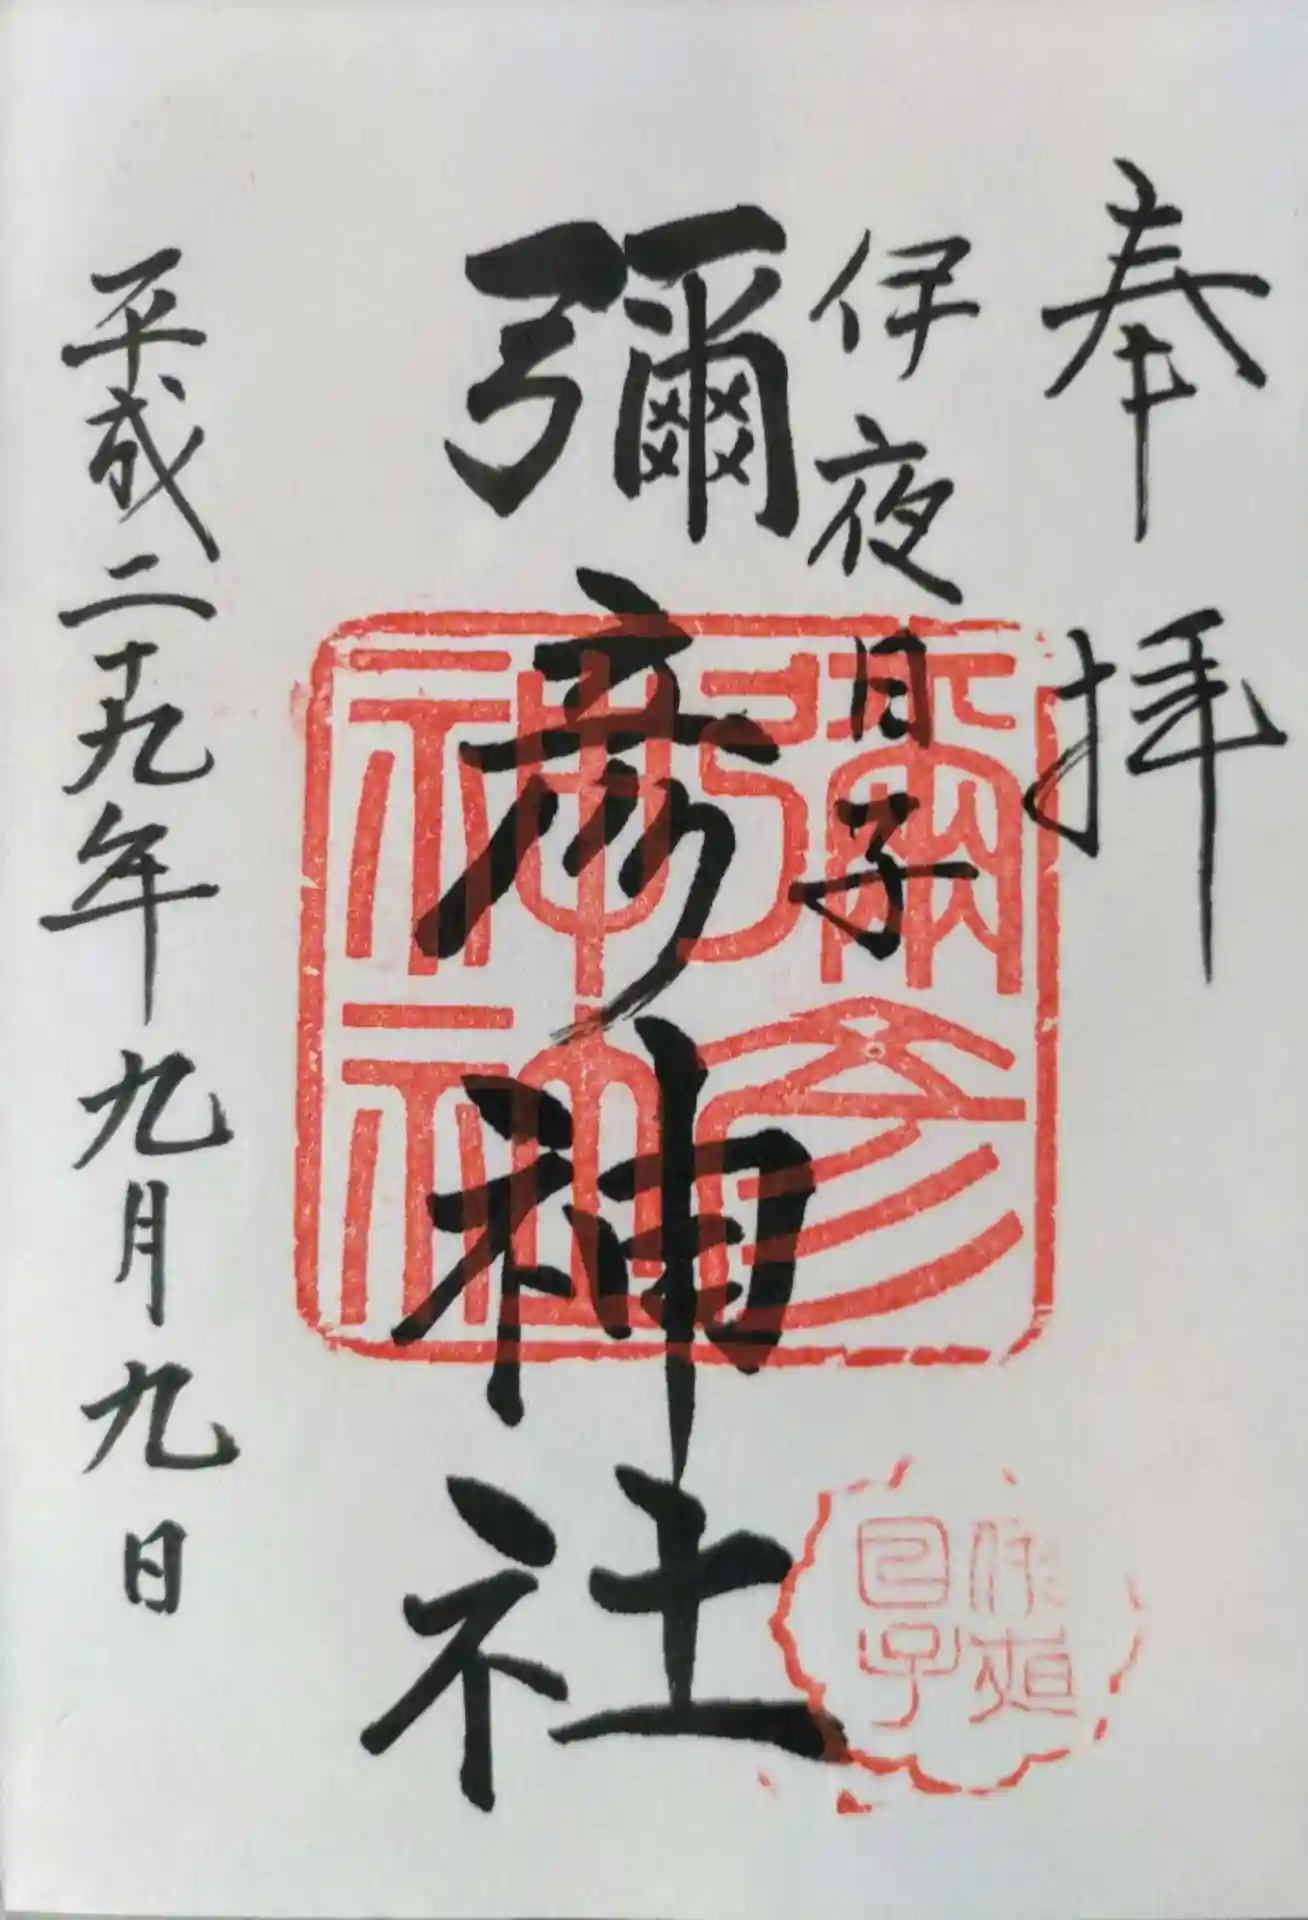 奉拝
伊夜日子
彌彦神社
平成二十九年九月九日
彌彦神社
伊夜日子